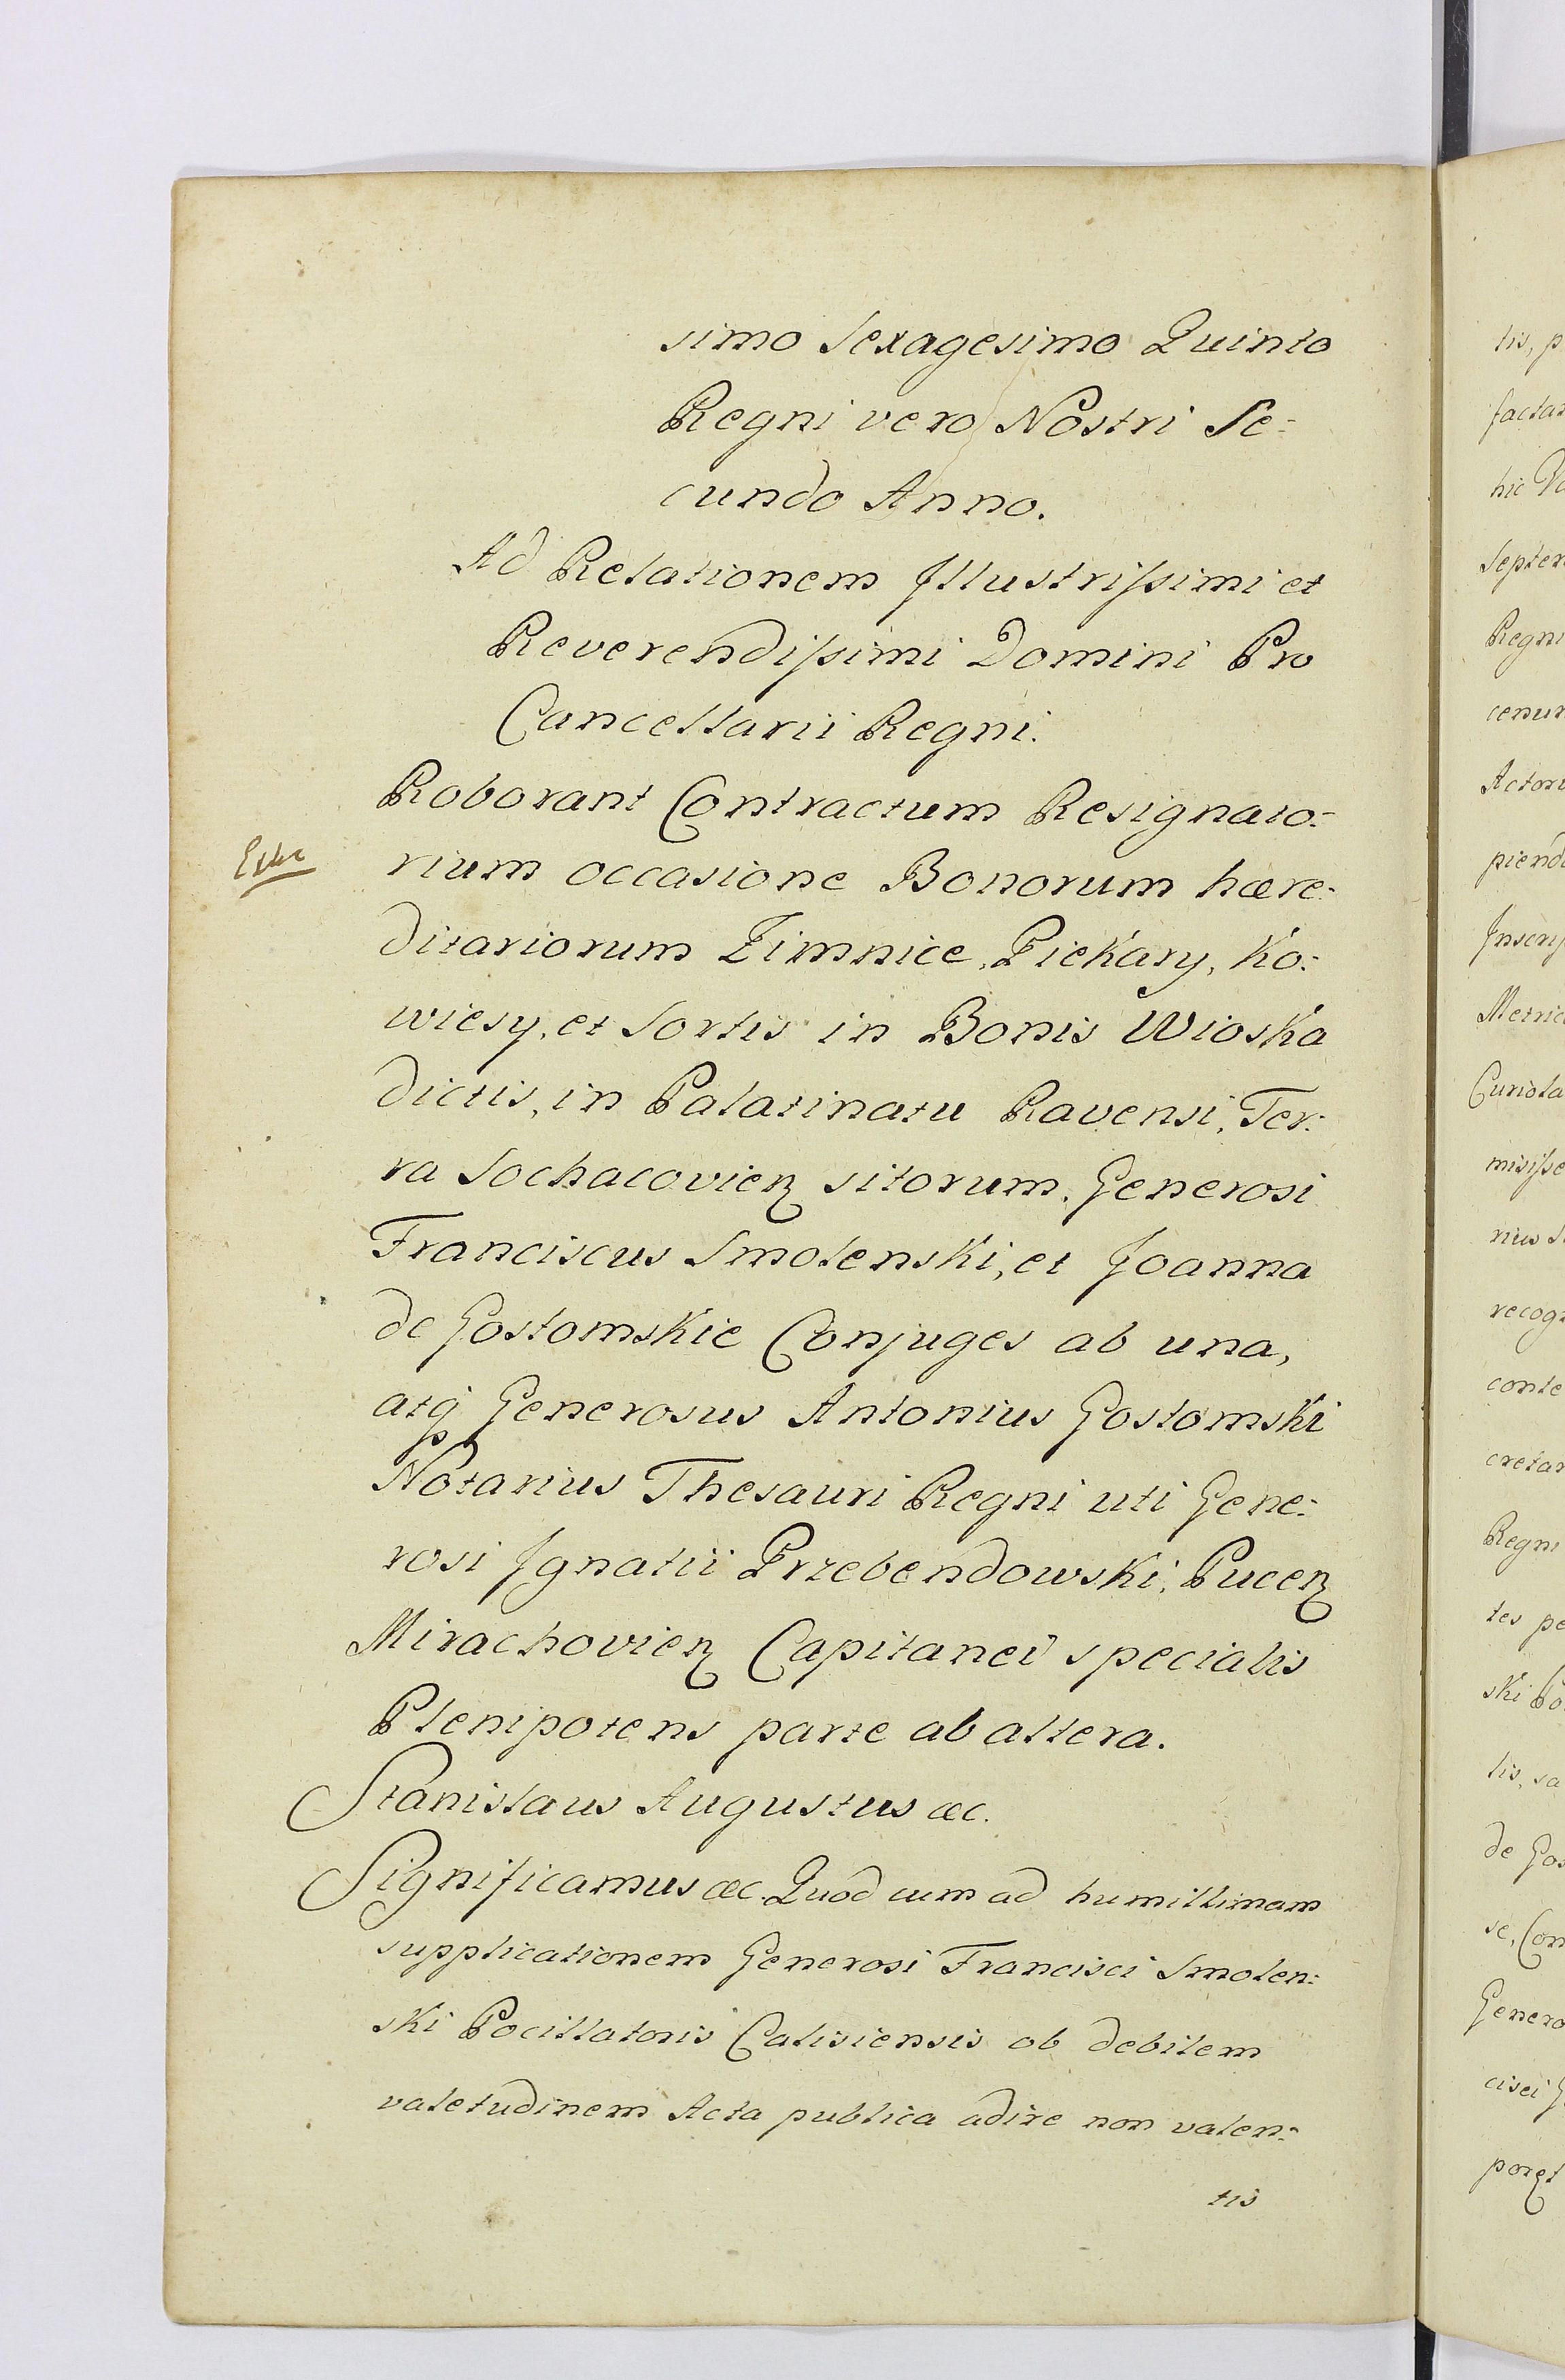 simo Sexagesimo Quinto
Regni vero Nostri Se-
cundo Anno.
Ad Relationem Illustrissimi et
Reverendissimi Domini Pro
Cancellarii Regni.
Roborant Contractum Resignato-
rium occasione Bonorum hære-
ditariorum Zimnice, Piekary, Ko-
wiesy, et Sortis in Bonis Wioska
dictis, in Palatinatu Ravensi, Ter-
ra Sochacovien sitorum. Generosi
Franciscus Smolenski, et Joanna
de Gostomskie Conjuges ab una,
atq Generosus Antonius Gostomski
Notarius Thesauri Regni uti Gene-
rosi Ignatii Przebendowski, Pucen
Mirachovien Capitanei specialis
Plenipotens parte ab altera.
Stanislaus Augustus &c.
Significamus &c. Quod cum ad humillimam
supplicationem Generosi Francisci Smolen-
ski Pocillatoris Calisiensis ob debilem
valetudinem Acta publica adire non valen-
tis
tis, p
factar
hic Va
Septem
Regni
cenun
Actor
piend
Inscrip
Metric
Curiola
misisse
rius S
recogn
conte
cretar
Regni
tes pe
ski Po
lis, sa
de Gos
se, Con
Genero
cisci